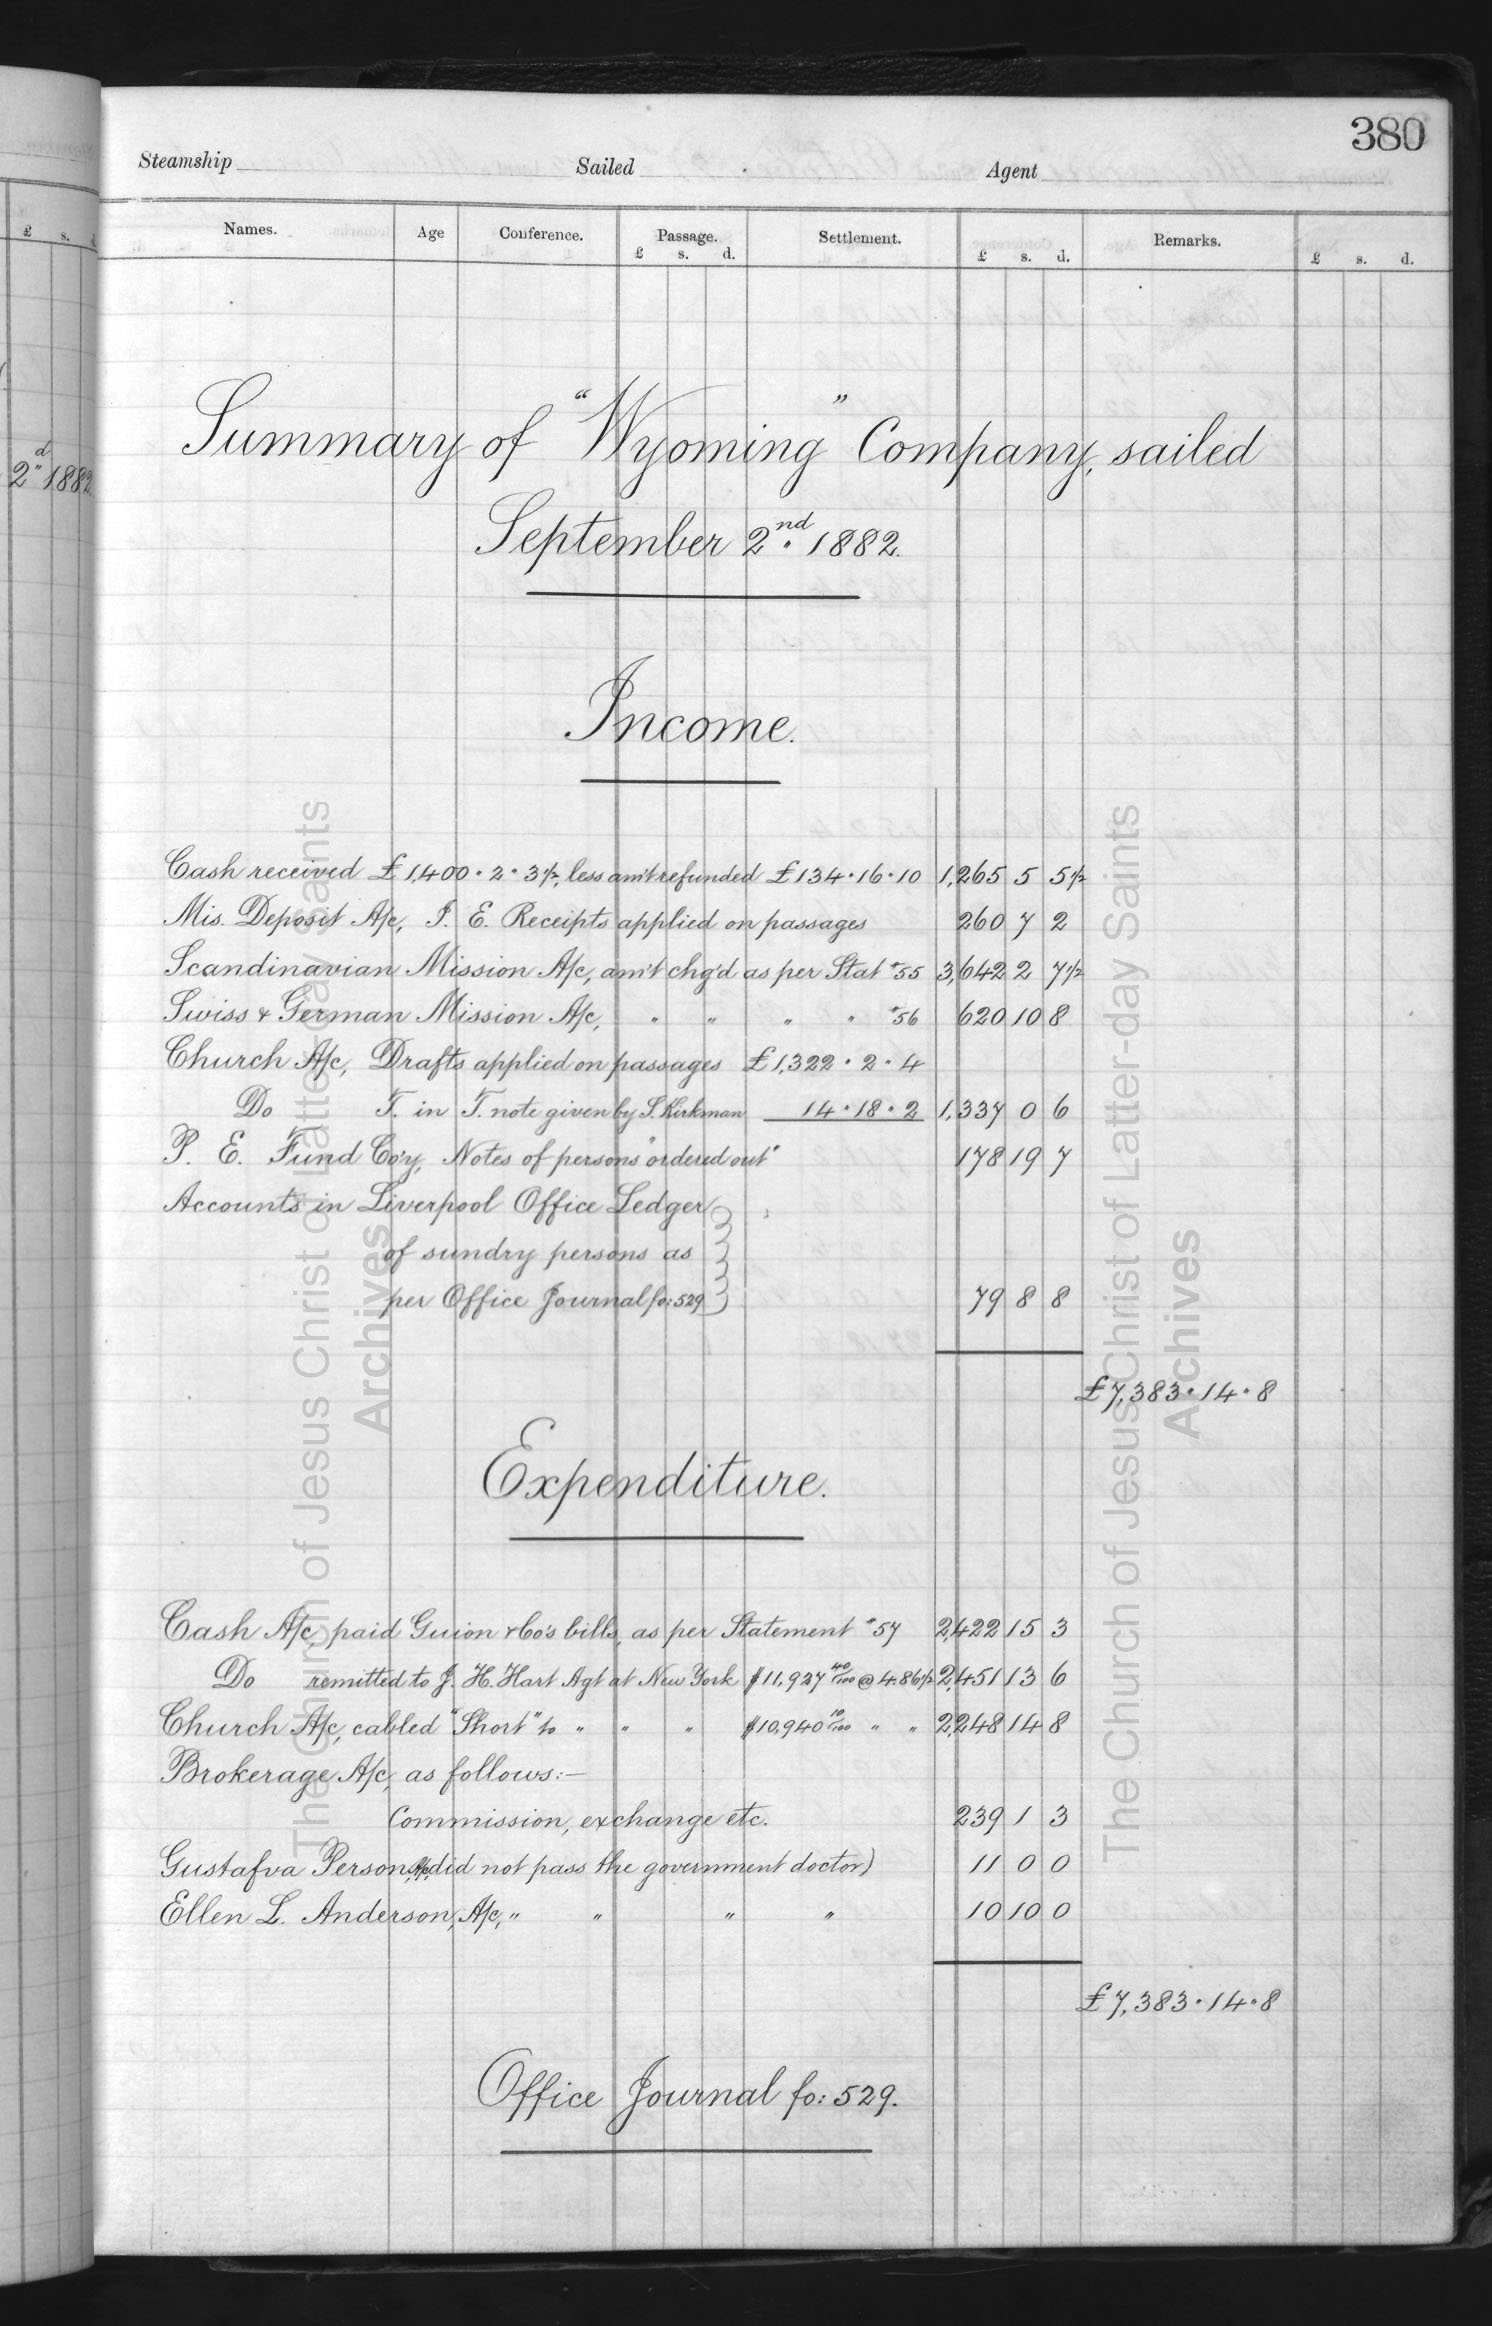 380
Steamship Sailed Agent
Names. Age Conference. Passage. Settlement. £ s. d. Remarks. £ s. d.
£ s. d.
£ s. d.
2d 1882
Summary of "Wyoming" Company, sailed
September 2nd 1882.
Income.
Cash received £1,400 · 2 · 3½, less am't refunded £134 · 16 · 10 1,265 5 5½
Mis. Deposit A/c, I. E. Receipts applied on passages 260 7 2
Scandinavian Mission A/c, am't chg'd as per Stat #55 3,642 2 7½
Swiss & German Mission A/c, " " " " #56 620 10 8
Church A/c, Drafts applied on passages £1,322 · 2 · 4
Do T. in T. note given by S. Kirkman 14 · 18 · 2 1,337 0 6
P. E. Fund Co'y, Notes of persons "ordered out" 178 19 7
Accounts in Liverpool Office Ledger
of sundry persons as
per Office Journal fo: 529 79 8 8
£7,383 · 14 · 8
Expenditure.
Cash A/c, paid Guion & Co's bills, as per Statement #57 2,422 15 3
Do remitted to J. H. Hart Agt at New York $11,927 40/100 @ 4.86½ 2,451 13 6
Church A/c, cabled "Short" to " " " $10,940 10/100 " " 2,248 14 8
Brokerage A/c, as follows:—
Commission, exchange etc. 239 1 3
Gustafva Person, A/c, (did not pass the government doctor) 11 0 0
Ellen L. Anderson, A/c, " " " " 10 10 0
£7,383 · 14 · 8
Office Journal fo: 529.
The Church of Jesus Christ of Latter-day Saints
Archives
The Church of Jesus Christ of Latter-day Saints
Archives